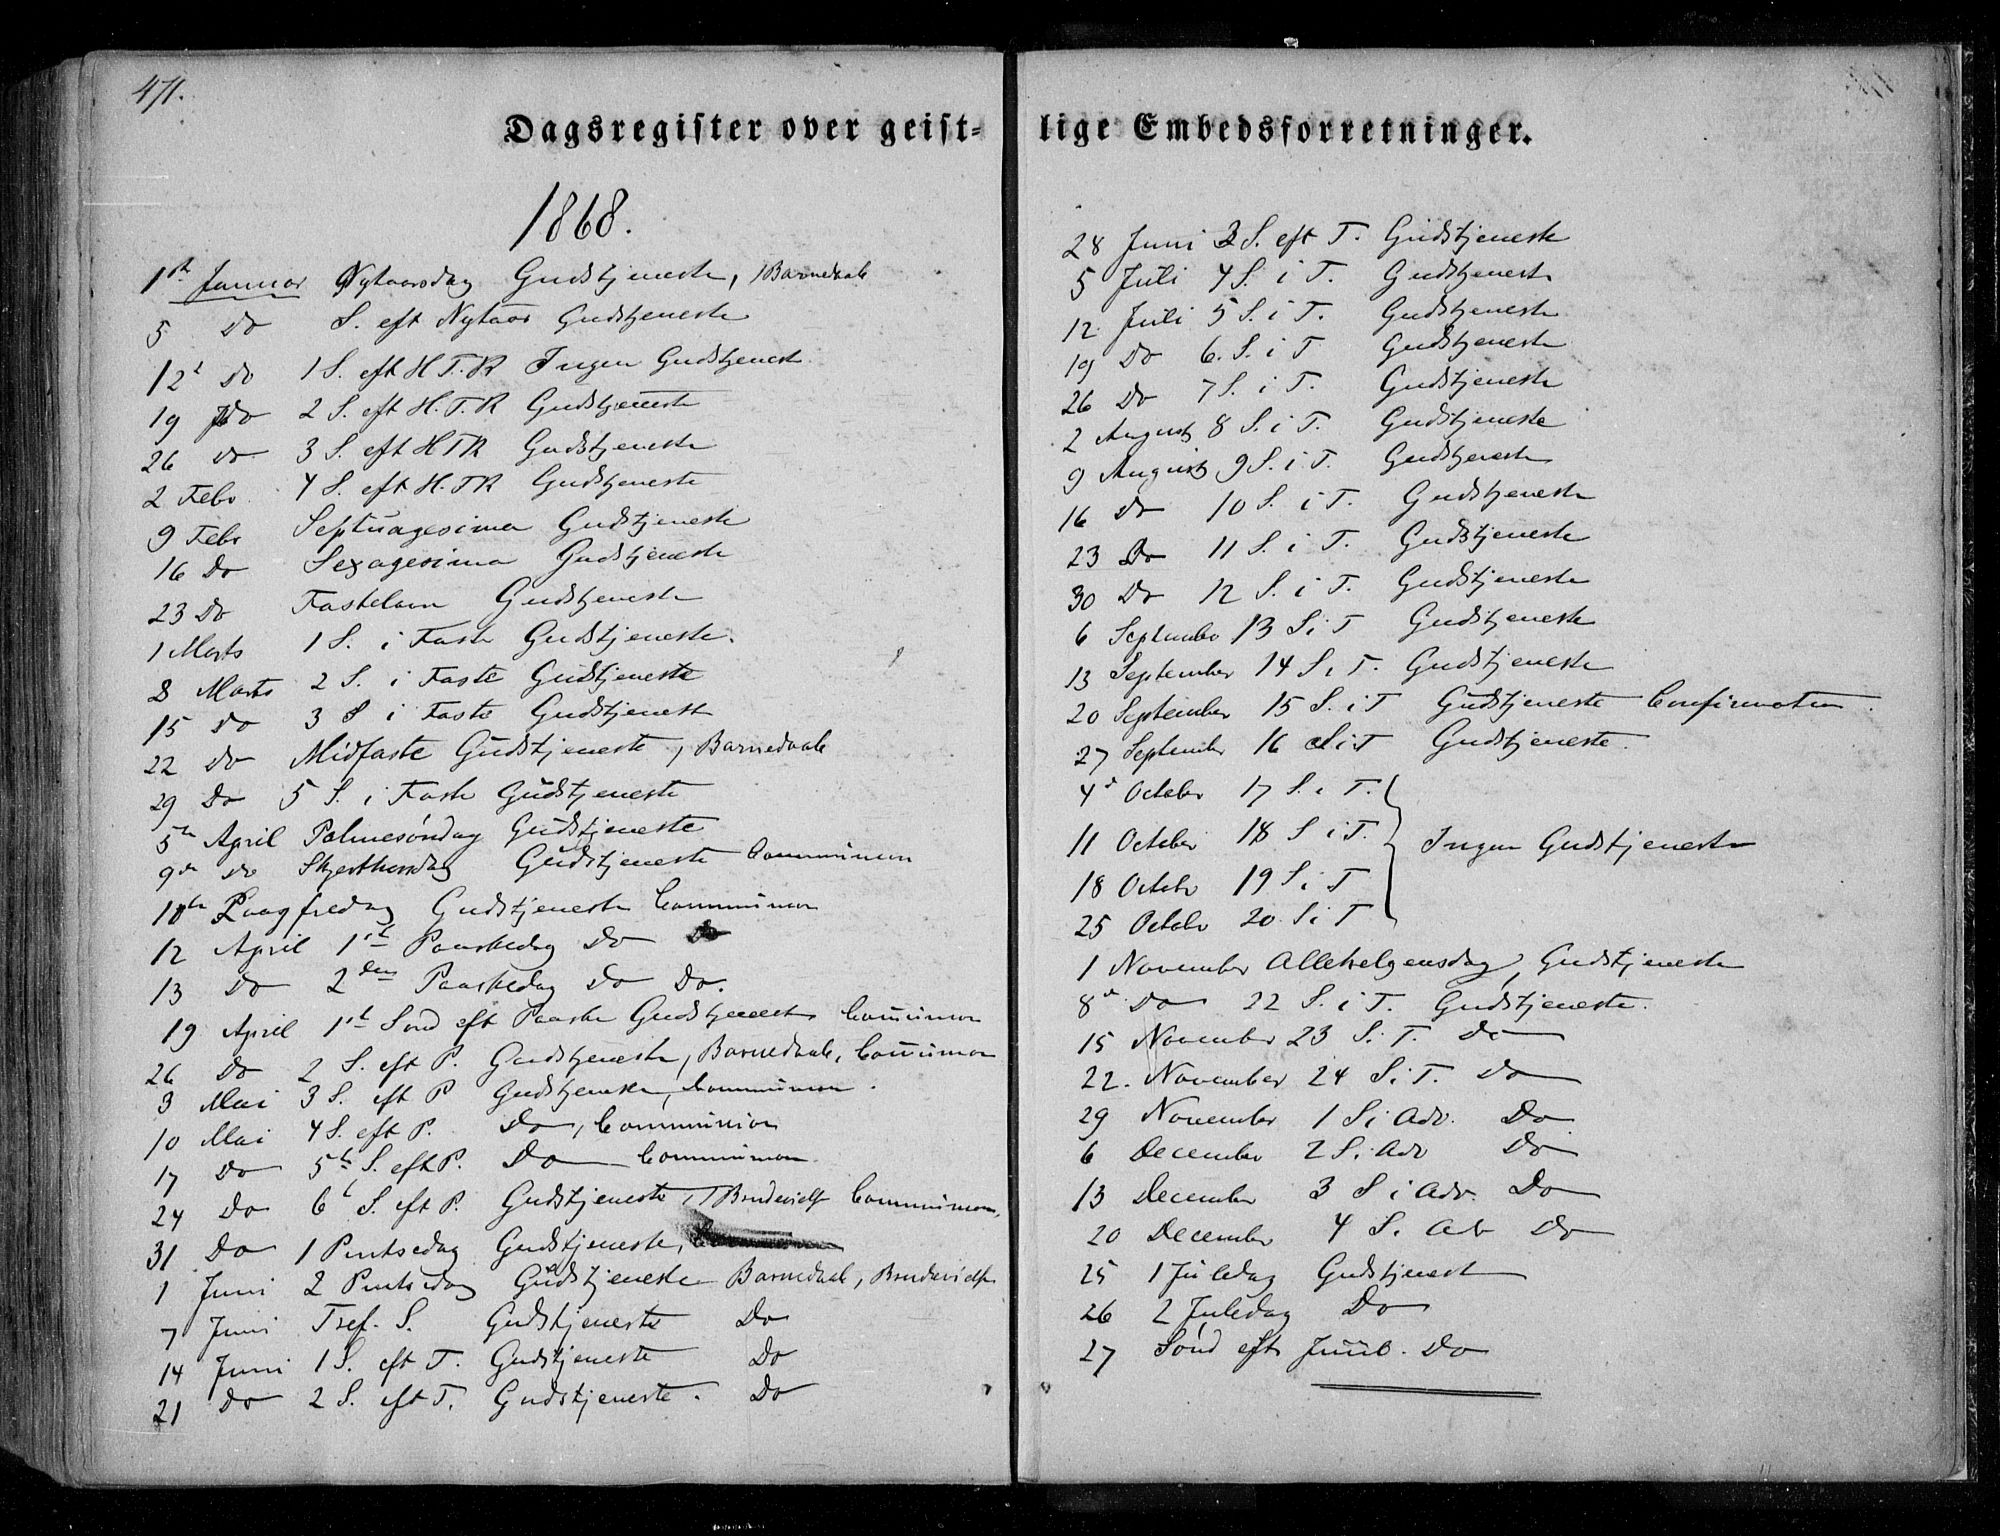 471.
Dagsregister over geist-
1868.
1ste Januar Nytaarsdag Gudstjeneste, 1 Barnedaab
5 Do S. eft Nytaar Gudstjeneste
12t Do 1 S. eft H.T.K Ingen Gudstjenest
19 Do 2 S. eft H.T.K Gudstjeneste
26 Do 3 S. eft HTK Gudstjeneste
2 Febr. 4 S. eft H.TK Gudstjeneste
9 Febr Septuagesima Gudstjeneste
16 Do Sexagesima Gudstjeneste
23 Do Fastelavn Gudstjeneste
1 Marts 1 S. i Faste Gudstjeneste.
8 Marts 2 S. i Faste Gudstjeneste
15 Do 3 S i Faste Gudstjenest
22 Do Midfaste Gudstjeneste, Barnedaab
29 Do 5 S. i Faste Gudstjeneste
5te April Palmesøndag Gudstjeneste
9de Do Skjerthorsdag Gudstjeneste Communion
10de Langfredag Gudstjeneste Communion
12 April 1ste Paaskedag Do Do
13 Do 2den Paaskedag Do Do.
19 April 1ste Sønd eft Paaske Gudstjeneste Communion
26 Do 2 S. eft P. Gudstjeneste, Barnedaab, Communion
3 Mai 3 S. eft P Gudstjeneste, Communion.
10 Mai 4 S. eft P. Do, Communion
17 Do 5te S. eft P. Do Communion
24 Do 6t S. eft P. Gudstjeneste, 1 Brudevielse Communion.
31 Do 1 Pintsedag Gudstjeneste,
1 Juni 2 Pintsedag Gudstjeneste Barnedaab, Brudevielse
7 Juni Tref. S. Gudstjeneste Do
14 Juni 1 S. eft T. Gudstjeneste Do
21 Do 2 S. eft T. Gudstjeneste. Do
lige Embedsforretninger.
28 Juni 3 S. eft T. Gudstjeneste
5 Juli 4 S. i T. Gudstjeneste
12. Juli 5 S. i T. Gudstjeneste
19 Do 6. S. i T Gudstjeneste
26 Do 7 S. i T. Gudstjeneste
2 August 8 S. i T. Gudstjeneste
9 August 9 S. i T. Gudstjeneste
16 Do 10 S. i T. Gudstjeneste
23 Do 11 S. i T. Gudstjeneste
30 Do 12 S. i T. Gudstjeneste
6 September 13 S i T Gudstjeneste
13 September 14 S i T. Gudstjeneste
20 September 15 S. i T Gudstjeneste Confirmation.
27 September 16 S i T Gudstjeneste.
4d October 17 S. i T.
11 October 18 S i T. Ingen Gudstjeneste
18 Octobr 19 S i T
25 Octobr 20. S i T
1 November Allehelgensdag, Gudstjeneste
8d Do 22 S. i T. Gudstjeneste.
15 November 23 S. i T. Do
22. November 24 S. i T. Do
29 November 1 S i Adv. Do
6 December 2 S. i Adv Do
13 December 3 S i Adv. Do
20 December 4 S. i Ad Do
25 1 Juledag Gudstjenest
26 2 Juledag Do
27 Sønd eft Juul. Do